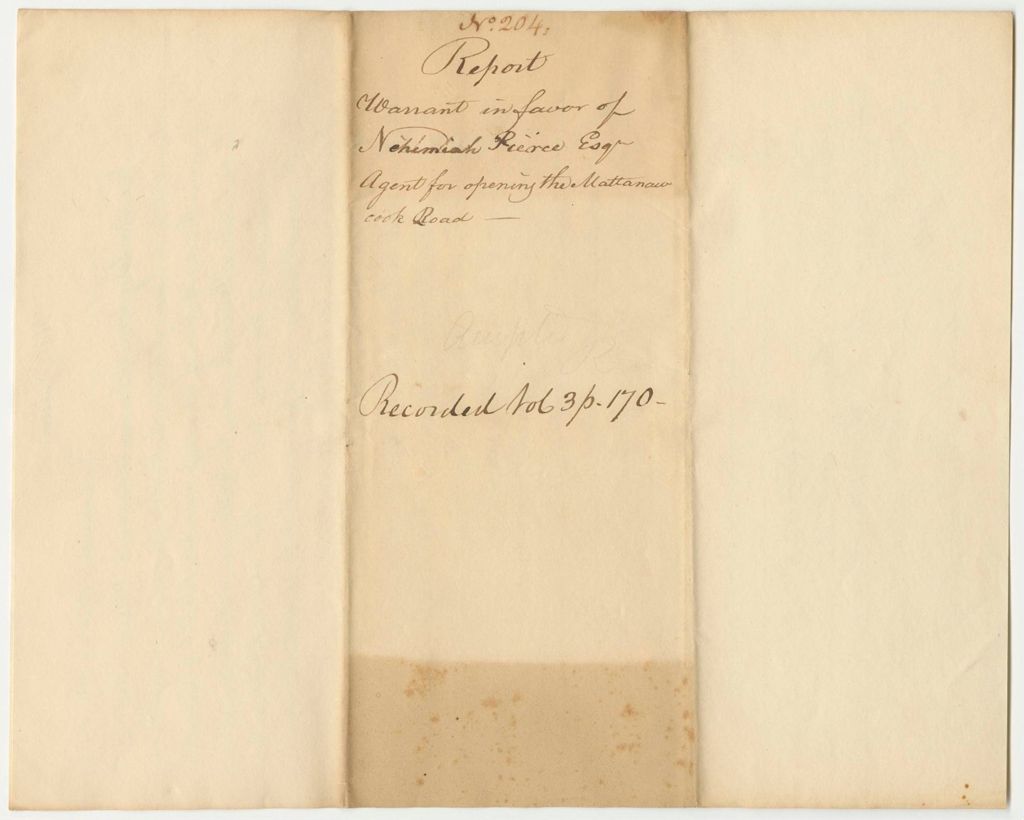 No. 204.
Report
Warrant in favor of
Nehimiah Pierce Esqr
Agent for opening the Mattanaw
cook Road —
Recorded Vol 3 p. 170 -